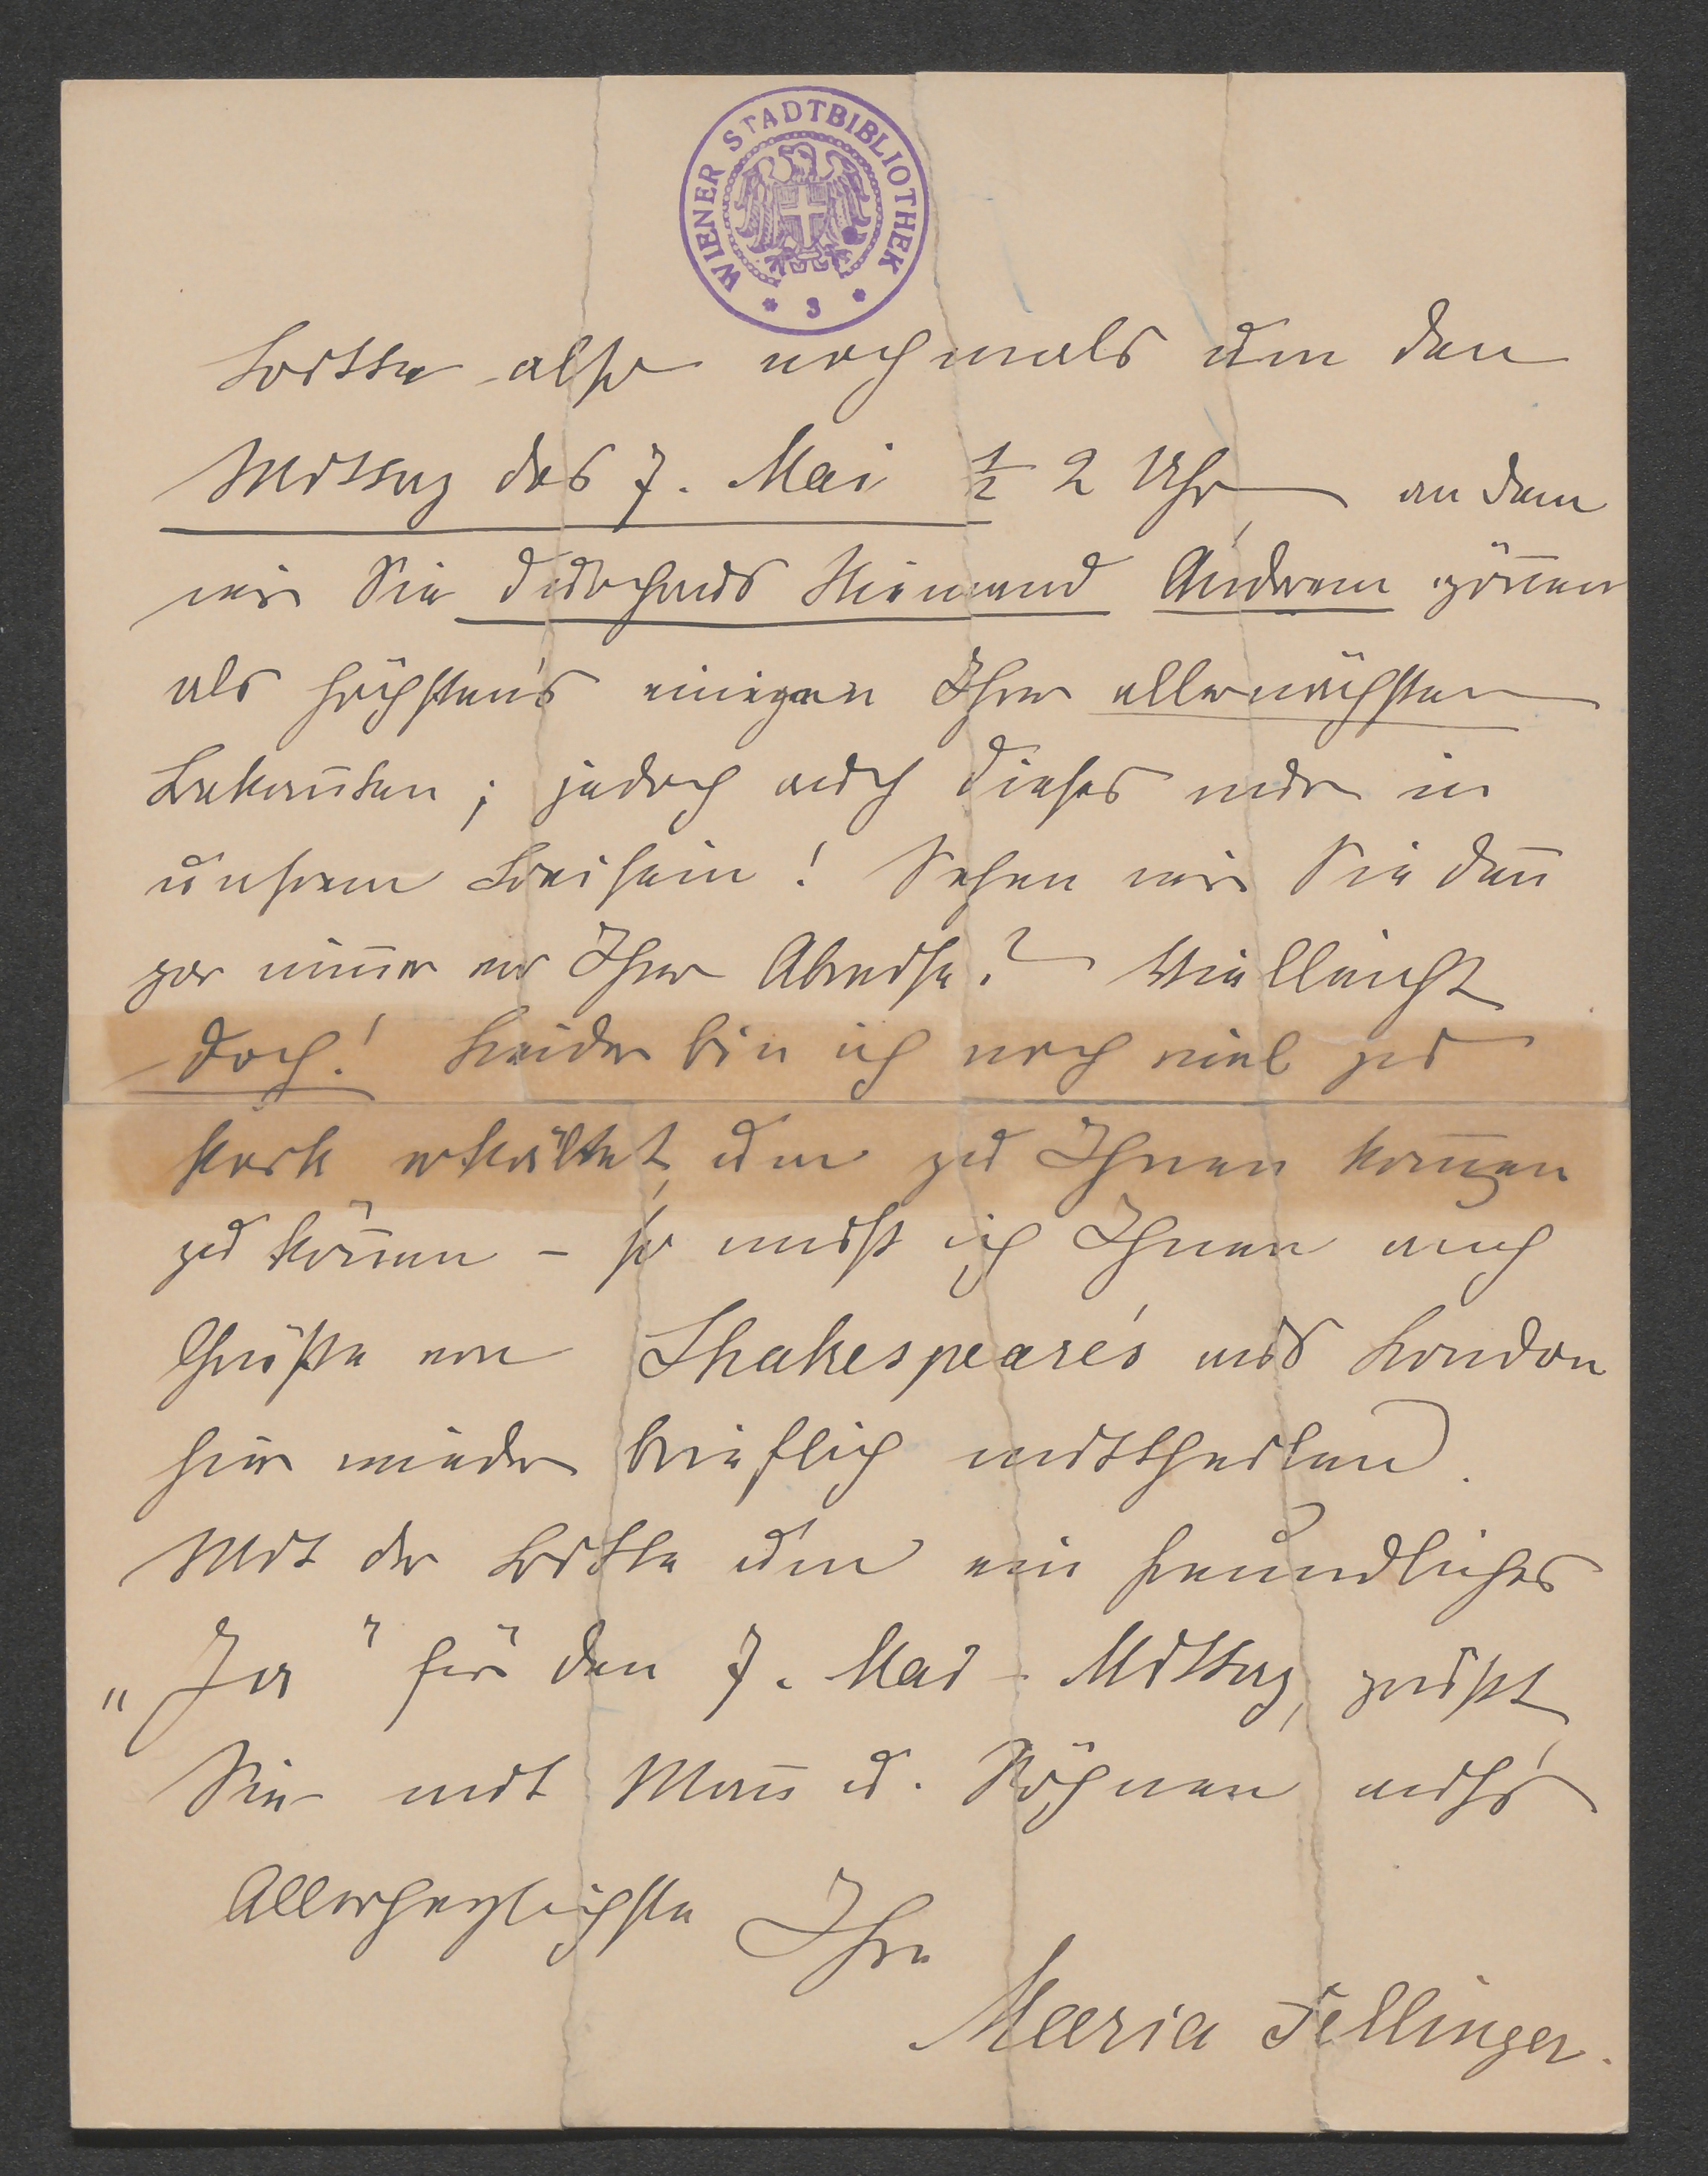 WIENER STADTBIBLIOTHEK
* 3 *
Bitte also nochmals um den
Mittag des 7. Mai ½ 2 Uhr, an dem
wir Sie durchaus Niemand Anderem gönnen
als höchstens einigen Ihrer allernächsten
Bekannten; jedoch auch dieses nur in
unsrem Beisein! Sehen wir Sie denn
gar nimmer vor Ihrer Abreise? Vielleicht
doch! Leider bin ich noch viel zu
stark erkältet, um zu Ihnen kommen
zu können – so muß ich Ihnen auch
Grüße von Shakespeare's aus London
hier wieder brieflich mittheilen.
Mit der Bitte um ein freundliches
„Ja" für den 7. Mai – Mittag, grüßt
Sie mit Mann u. Söhnen auf's
Allerherzlichste Ihre
Maria Fellinger.